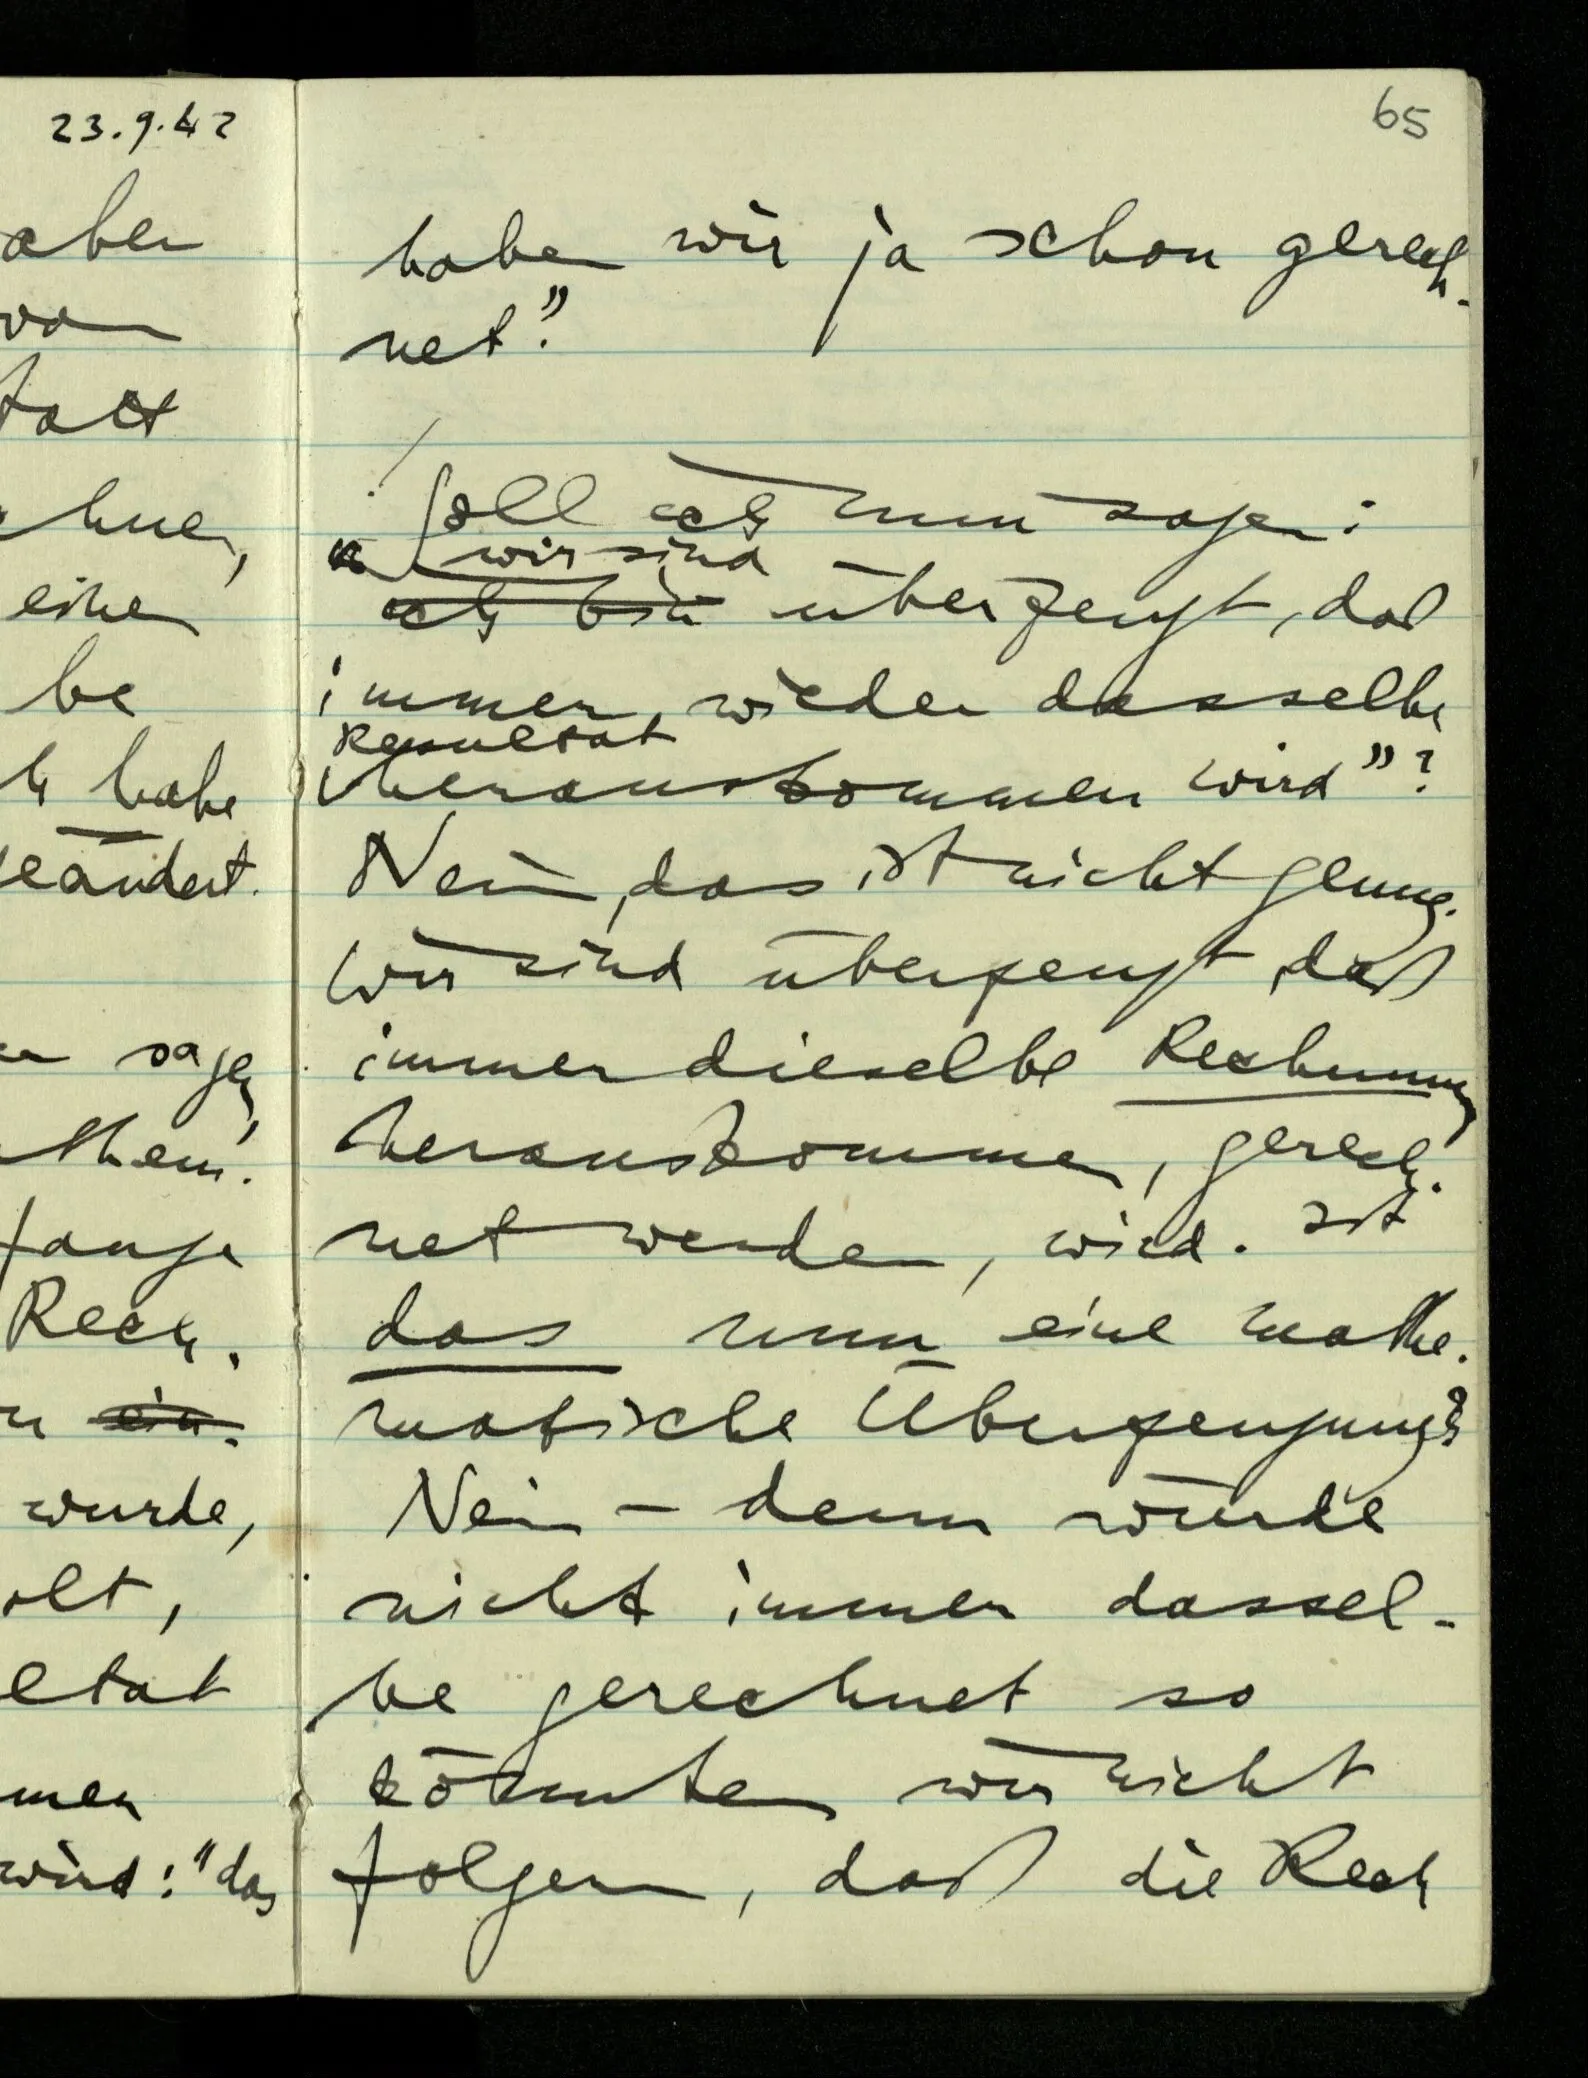 23.9.42
aber
von
tatt
chnen,
einen
be
h habe
eändert.
sagen,
them.
fange
Rech.
ein.
wurde,
olt,
ltat
men
wird: "das
65
haben wir ja schon gerech-
net."
/ Soll ich nun sagen:
" wir sind
ich bin überzeugt, daß
immer wieder dasselbe
Resultat
herauskommen wird"?
Nein, das ist nicht genug.
Wir sind überzeugt, daß
immer dieselbe Rechnung
herauskommen, gerech-
net werden, wird. Ist
das nun eine mathe-
matische Überzeugung?
Nein – denn würde
nicht immer dassel-
be gerechnet so
könnten wir nicht
folgern, daß die Rech